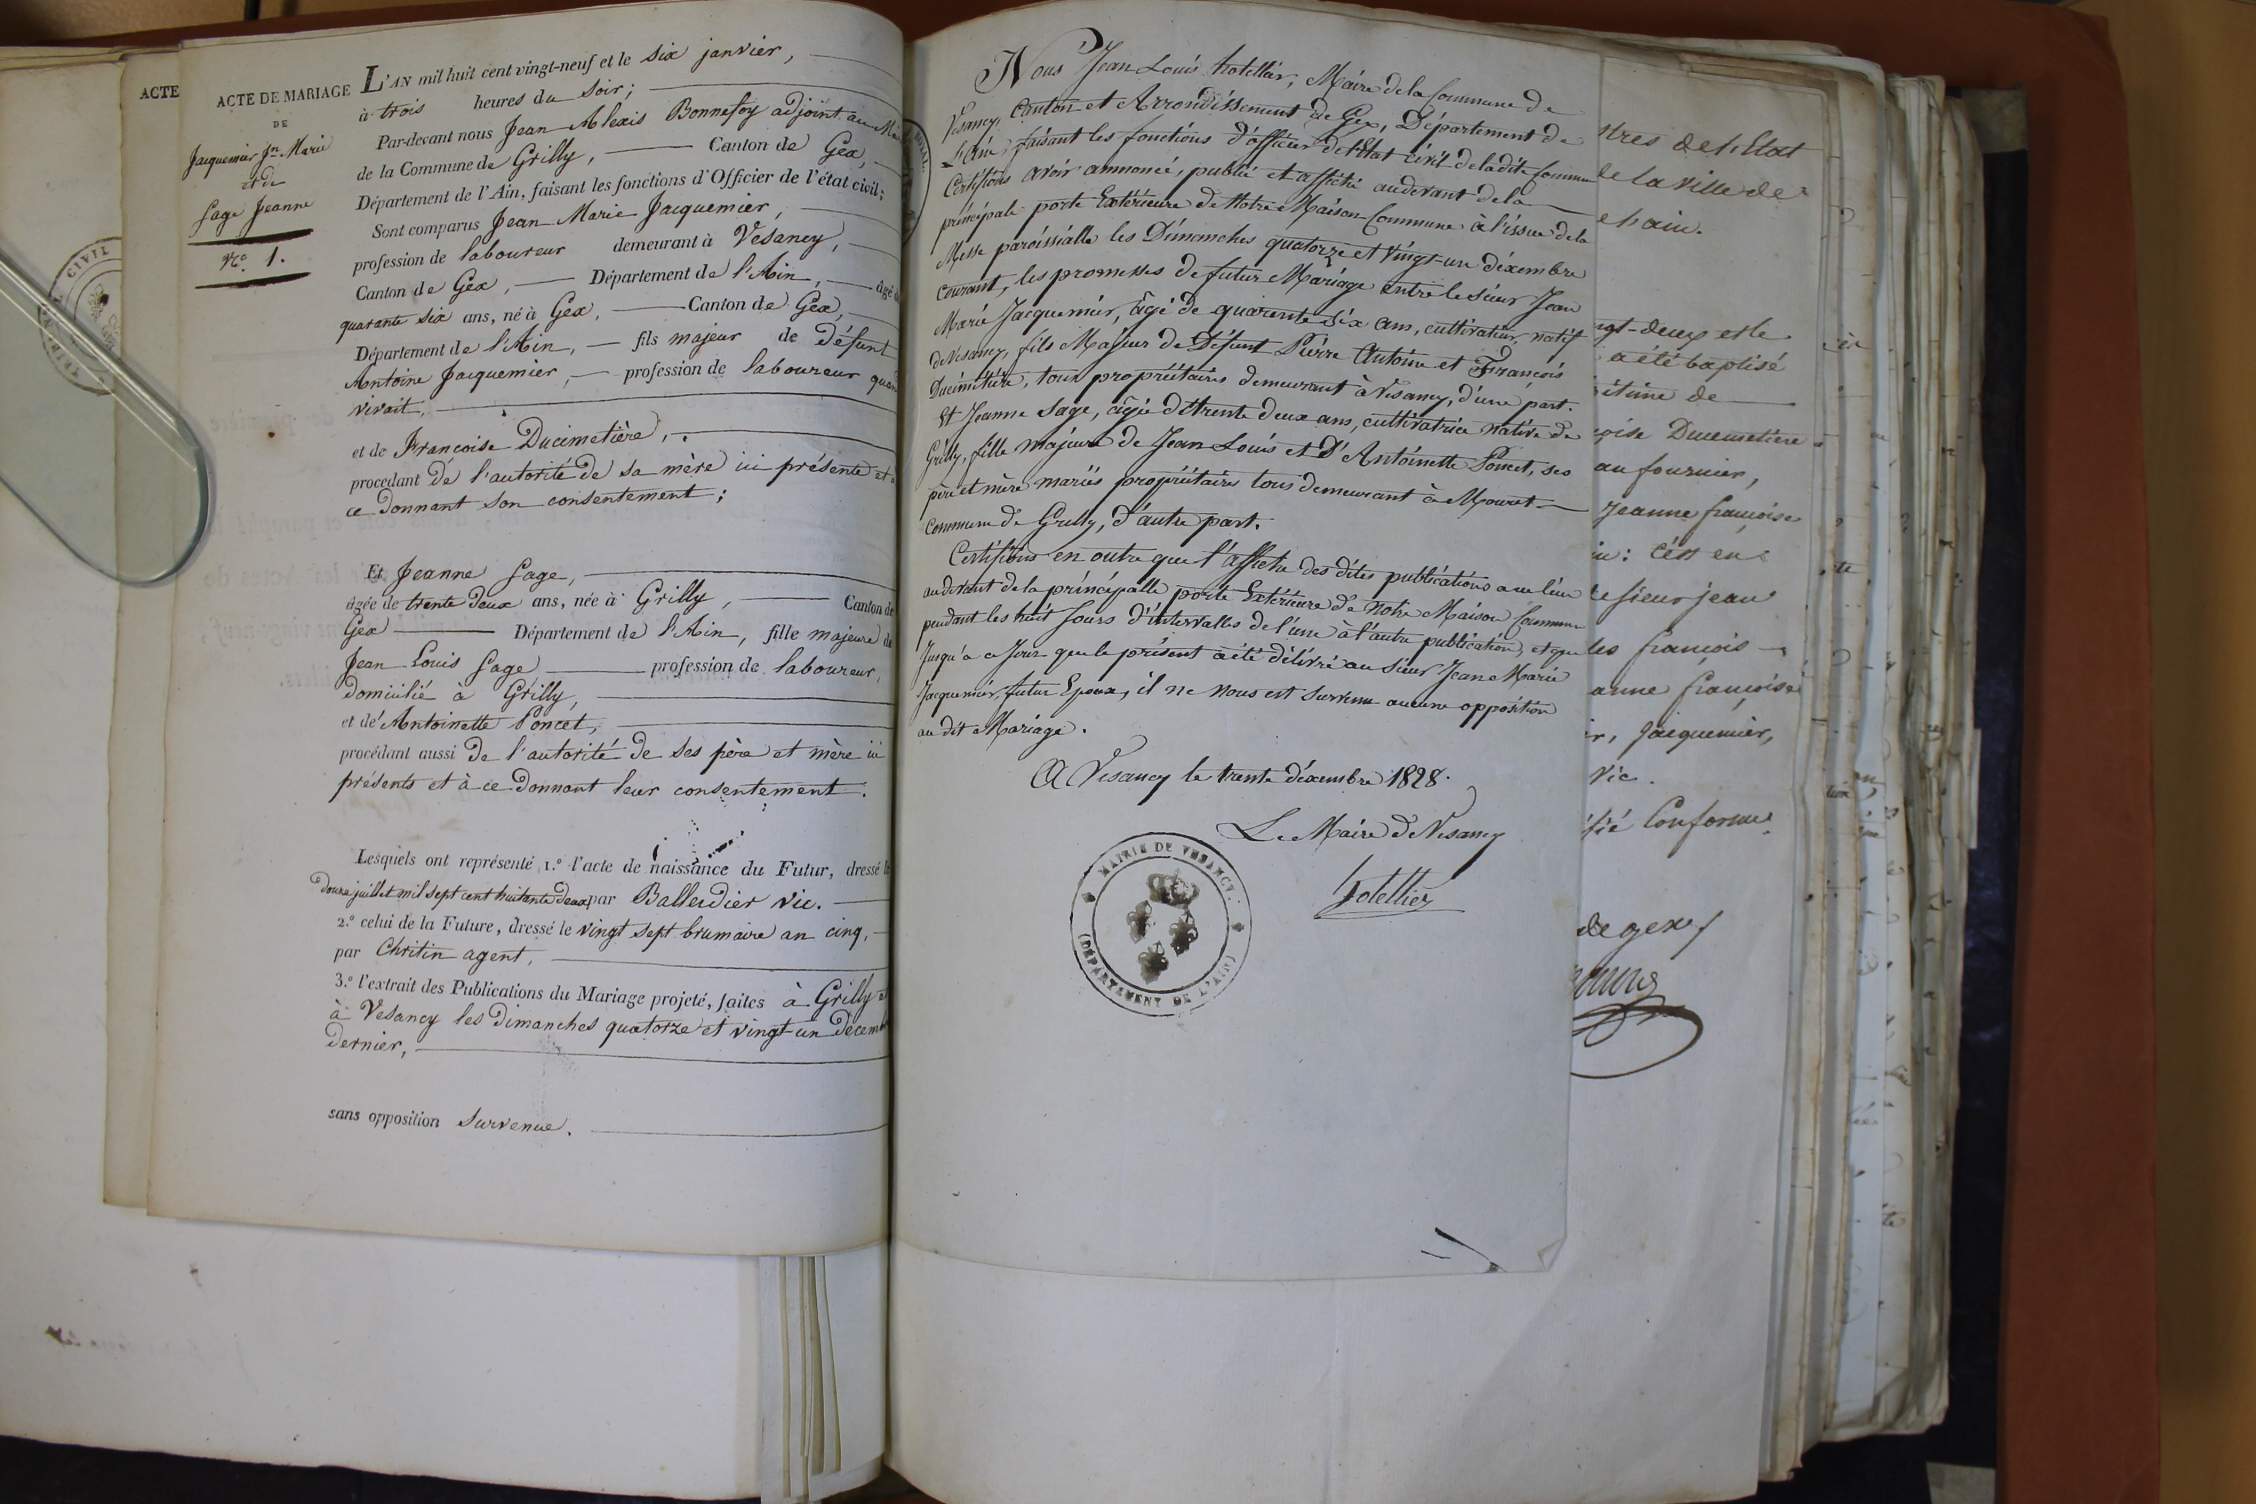 ACTE
ACTE DE MARIAGE
DE
Jacquemier Jn. Marie
et de
Sage Jeanne
No. 1.
L'AN mil huit cent vingt-neuf et le six janvier,
à trois heures du soir;
Par-devant nous Jean Alexis Bonnefoy adjoint au
de la Commune de Grilly, Canton de Gex,
Département de l'Ain, faisant les fonctions d'Officier de l'état civil;
Sont comparus Jean Marie Jacquemier,
profession de laboureur demeurant à Vesancy,
Canton de Gex, Département de l'Ain, âgé
quarante six ans, né à Gex, Canton de Gex,
Département de l'Ain, fils majeur de défunt
Antoine Jacquemier, profession de laboureur quand
vivait,
et de Francoise Ducimetière,
procedant de l'autorité de sa mère ici présente et
ce donnant son consentement;
Et Jeanne Sage,
âgée de trente deux ans, née à Grilly, Canton de
Gex Département de l'Ain, fille majeure de
Jean Louis Sage profession de laboureur,
domicilié à Grilly,
et de Antoinette Poncet,
procédant aussi de l'autorité de ses père et mère ici
présents et à ce donnant leur consentement.
Lesquels ont représenté 1.° l'acte de naissance du Futur, dressé le
douze juillet mil sept cent huitante deux par Balleidier vic.
2.° celui de la Future, dressé le vingt sept brumaire an cinq,
par Chritin agent,
3.° l'extrait des Publications du Mariage projeté, faites à Grilly
à Vesancy les dimanches quatorze et vingt-un décem
dernier,
sans opposition survenue.
Nous Jean Louis hotellier, Maire de la Commune de
Vesancy, canton et Arrondissement de Gex, Département de
l'Ain, faisant les fonctions d'officier de l'Etat civil de la dite Commune
Certifions avoir annoncé, publié et affiché au devant de la
principale porte Extérieure de Notre Maison Commune à l'issue de la
Messe paroissialle les Dimanches quatorze et vingt-un décembre
courant, les promesses de futur Mariage entre le sieur Jean
Marie Jacquemier, âgé de quarente six ans, cultivateur, natif
de Vesancy, fils Majeur de Défunt Pierre Antoine et François
Ducimetière, tous propriétaires demeurant à Vesancy, d'une part.
Et Jeanne Sage, âgée de trente deux ans, cultivatrice native de
Grilly, fille majeure de Jean Louis et D'Antoinette Poncet, ses
père et mère mariés propriétaires tous demeurant à Mouret
commune de Grilly, d'autre part.
Certifions en outre que l'affiche des dites publications a eu lieu
au devant de la principalle porte Extérieure de notre Maison Commune
pendant les huit Jours d'intervalles de l'une à l'autre publication, et que
Jusqu'à ce Jour que le présent a été délivré au sieur Jean Marie
Jacquemier, futur Epoux, il ne nous est survenu aucune opposition
au dit Mariage.
A Vesancy le trente décembre 1828.
Le Maire de Vesancy
hotellier
MAIRIE DE VESANCY.
(DÉPARTEMENT DE L'AIN)
stres de l'Etat
de la ville de
ngt-deux et le
a été baptisé
itime de
çoise Ducimetière
au fournier,
Jeanne françoise
c'est en
le sieur jean
les françois
anne françoise
r, Jacquemier,
vic.
fié Conforme
de gex